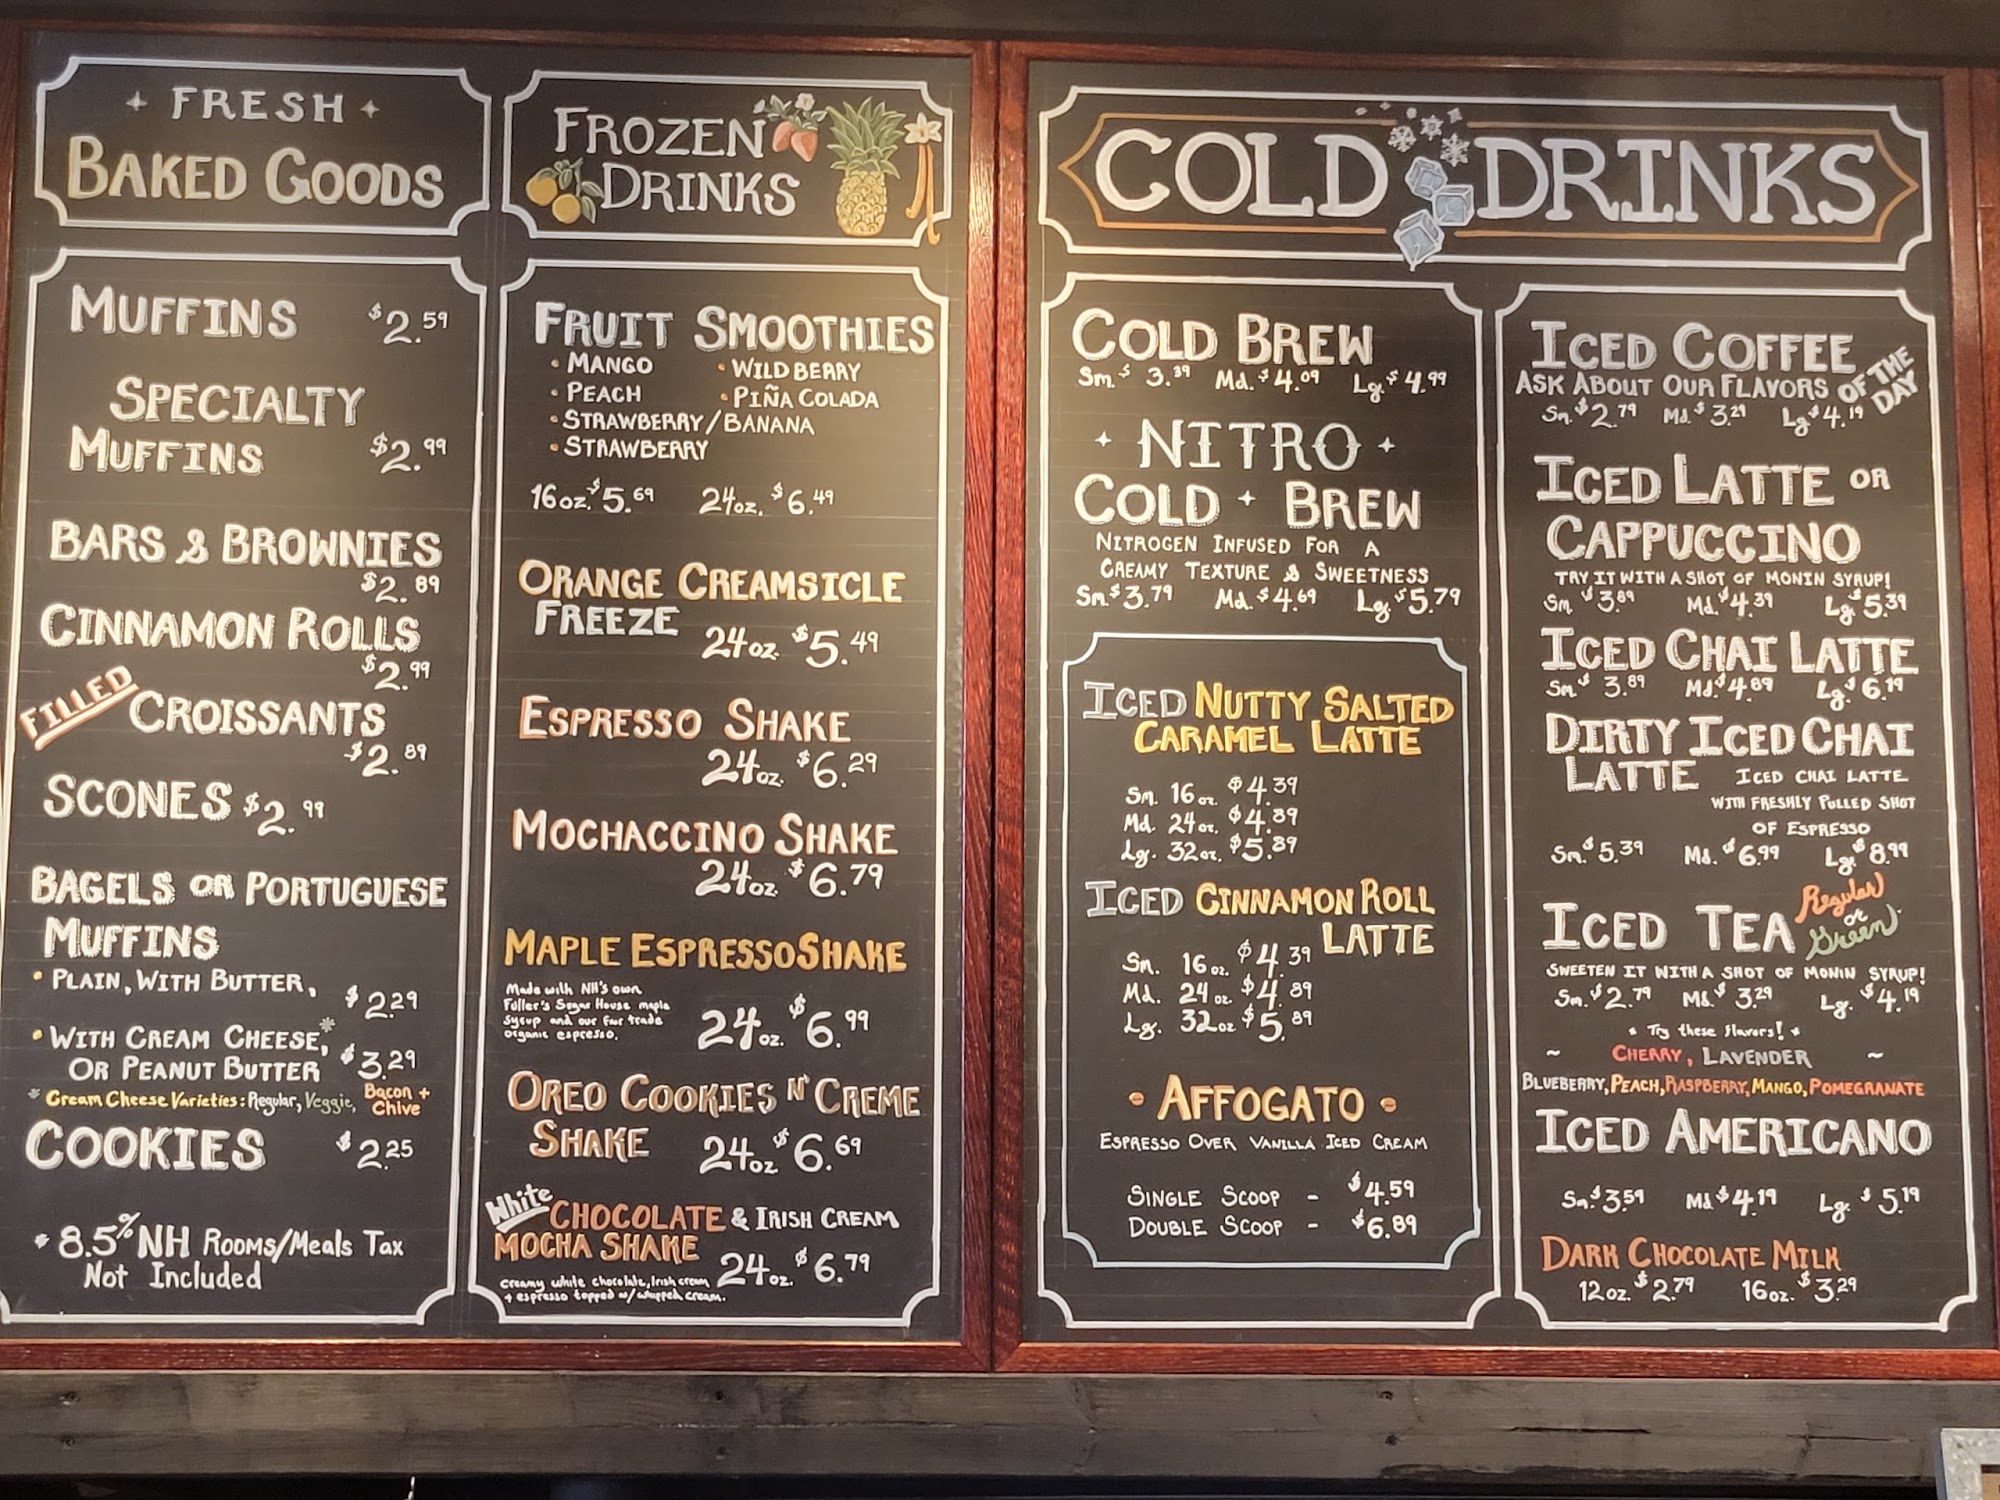 FRESH
BAKED GOODS
MUFFINS $2.59
SPECIALTY
MUFFINS $2.99
BARS & BROWNIES
$2.89
CINNAMON ROLLS
$2.99
FILLED CROISSANTS
$2.89
SCONES $2.99
BAGELS OR PORTUGUESE
MUFFINS
• PLAIN, WITH BUTTER, $2.29
• WITH CREAM CHEESE,*
OR PEANUT BUTTER $3.29
* Cream Cheese Varieties: Regular, Veggie, Bacon +
Chive
COOKIES $2.25
* 8.5% NH ROOMS/MEALS TAX
Not Included
FROZEN
DRINKS
FRUIT SMOOTHIES
• MANGO • WILD BERRY
• PEACH • PIÑA COLADA
• STRAWBERRY/BANANA
• STRAWBERRY
16oz. $5.69 24oz. $6.49
ORANGE CREAMSICLE
FREEZE 24oz $5.49
ESPRESSO SHAKE
24oz. $6.29
MOCHACCINO SHAKE
24oz $6.79
MAPLE ESPRESSO SHAKE
Made with NH's own
Fuller's Sugar House maple
syrup and our fair trade
organic espresso.
24oz. $6.99
OREO COOKIES N' CREME
SHAKE 24oz $6.69
White CHOCOLATE & IRISH CREAM
MOCHA SHAKE 24oz. $6.79
creamy white chocolate, Irish cream
+ espresso topped w/ whipped cream.
COLD DRINKS
COLD BREW
Sm. $3.39 Md. $4.09 Lg. $4.99
NITRO
COLD BREW
NITROGEN INFUSED FOR A
CREAMY TEXTURE & SWEETNESS
Sm. $3.79 Md. $4.69 Lg. $5.79
ICED NUTTY SALTED
CARAMEL LATTE
Sm. 16oz. $4.39
Md. 24oz. $4.89
Lg. 32oz. $5.89
ICED CINNAMON ROLL
LATTE
Sm. 16oz. $4.39
Md. 24oz $4.89
Lg. 32oz $5.89
• AFFOGATO •
ESPRESSO OVER VANILLA ICED CREAM
SINGLE SCOOP - $4.59
DOUBLE SCOOP - $6.89
ICED COFFEE
ASK ABOUT OUR FLAVORS OF THE
DAY
Sm. $2.79 Md. $3.29 Lg. $4.19
ICED LATTE OR
CAPPUCCINO
TRY IT WITH A SHOT OF MONIN SYRUP!
Sm. $3.89 Md. $4.39 Lg. $5.39
ICED CHAI LATTE
Sm. $3.89 Md. $4.89 Lg. $6.19
DIRTY ICED CHAI
LATTE ICED CHAI LATTE
WITH FRESHLY PULLED SHOT
OF ESPRESSO
Sm. $5.39 Md. $6.99 Lg. $8.99
ICED TEA Regular
or
Green
SWEETEN IT WITH A SHOT OF MONIN SYRUP!
Sm. $2.79 Md. $3.29 Lg. $4.19
* Try these flavors! *
~ CHERRY, LAVENDER ~
BLUEBERRY, PEACH, RASPBERRY, MANGO, POMEGRANATE
ICED AMERICANO
Sm. $3.59 Md $4.19 Lg. $5.19
DARK CHOCOLATE MILK
12oz. $2.79 16oz. $3.29